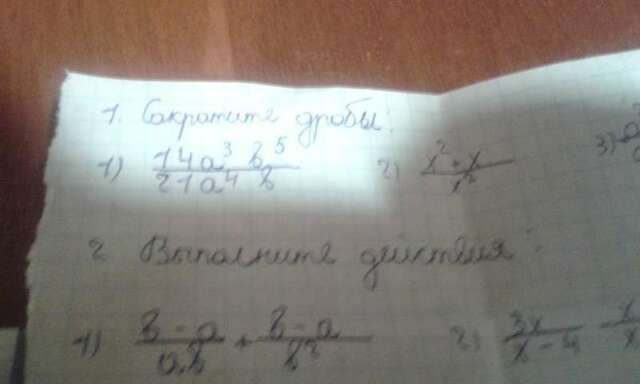 1. Сократите дробы:
1) 14a³b⁵ / 21a⁴b 2) x² + x / x² 3)
2 Выполните действия:
1) b - a / ab + b - a / b² 2) 3x / x - 4 - x / x